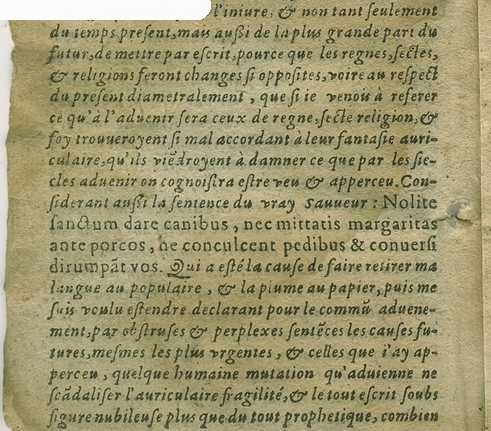 l'iniure, & non tant ſeulement
du temps preſent, mais auſsi de la plus grande part du
futur, de mettre par eſcrit, pource que les regnes, ſectes,
& religions feront changes ſi oppoſites, voire au reſpect
du preſent diametralement, que ſi ie venois à referer
ce qu'à l'aduenir ſera ceux de regne, ſecte religion, &
foy trouueroyent ſi mal accordant à leur fantaſie auri-
culaire, qu'ils viẽdroyent à damner ce que par les ſie-
cles aduenir on cognoiſtra eſtre veu & apperceu. Con-
ſiderant auſsi la ſentence du vray Sauueur : Nolite
ſanctum dare canibus, nec mittatis margaritas
ante porcos, ne conculcent pedibus & conuerſi
dirumpãt vos. Qui a eſté la cauſe de faire retirer ma
langue au populaire, & la plume au papier, puis me
ſuis voulu eſtendre declarant pour le commũ aduene-
ment, par obſtruſes & perplexes ſentẽces les cauſes fu-
tures, meſmes les plus vrgentes, & celles que i'ay ap-
perceu, quelque humaine mutation qu'aduienne ne
ſcãdaliſer l'auriculaire fragilité, & le tout eſcrit ſoubs
figure nubileuſe plus que du tout prophetique, combien